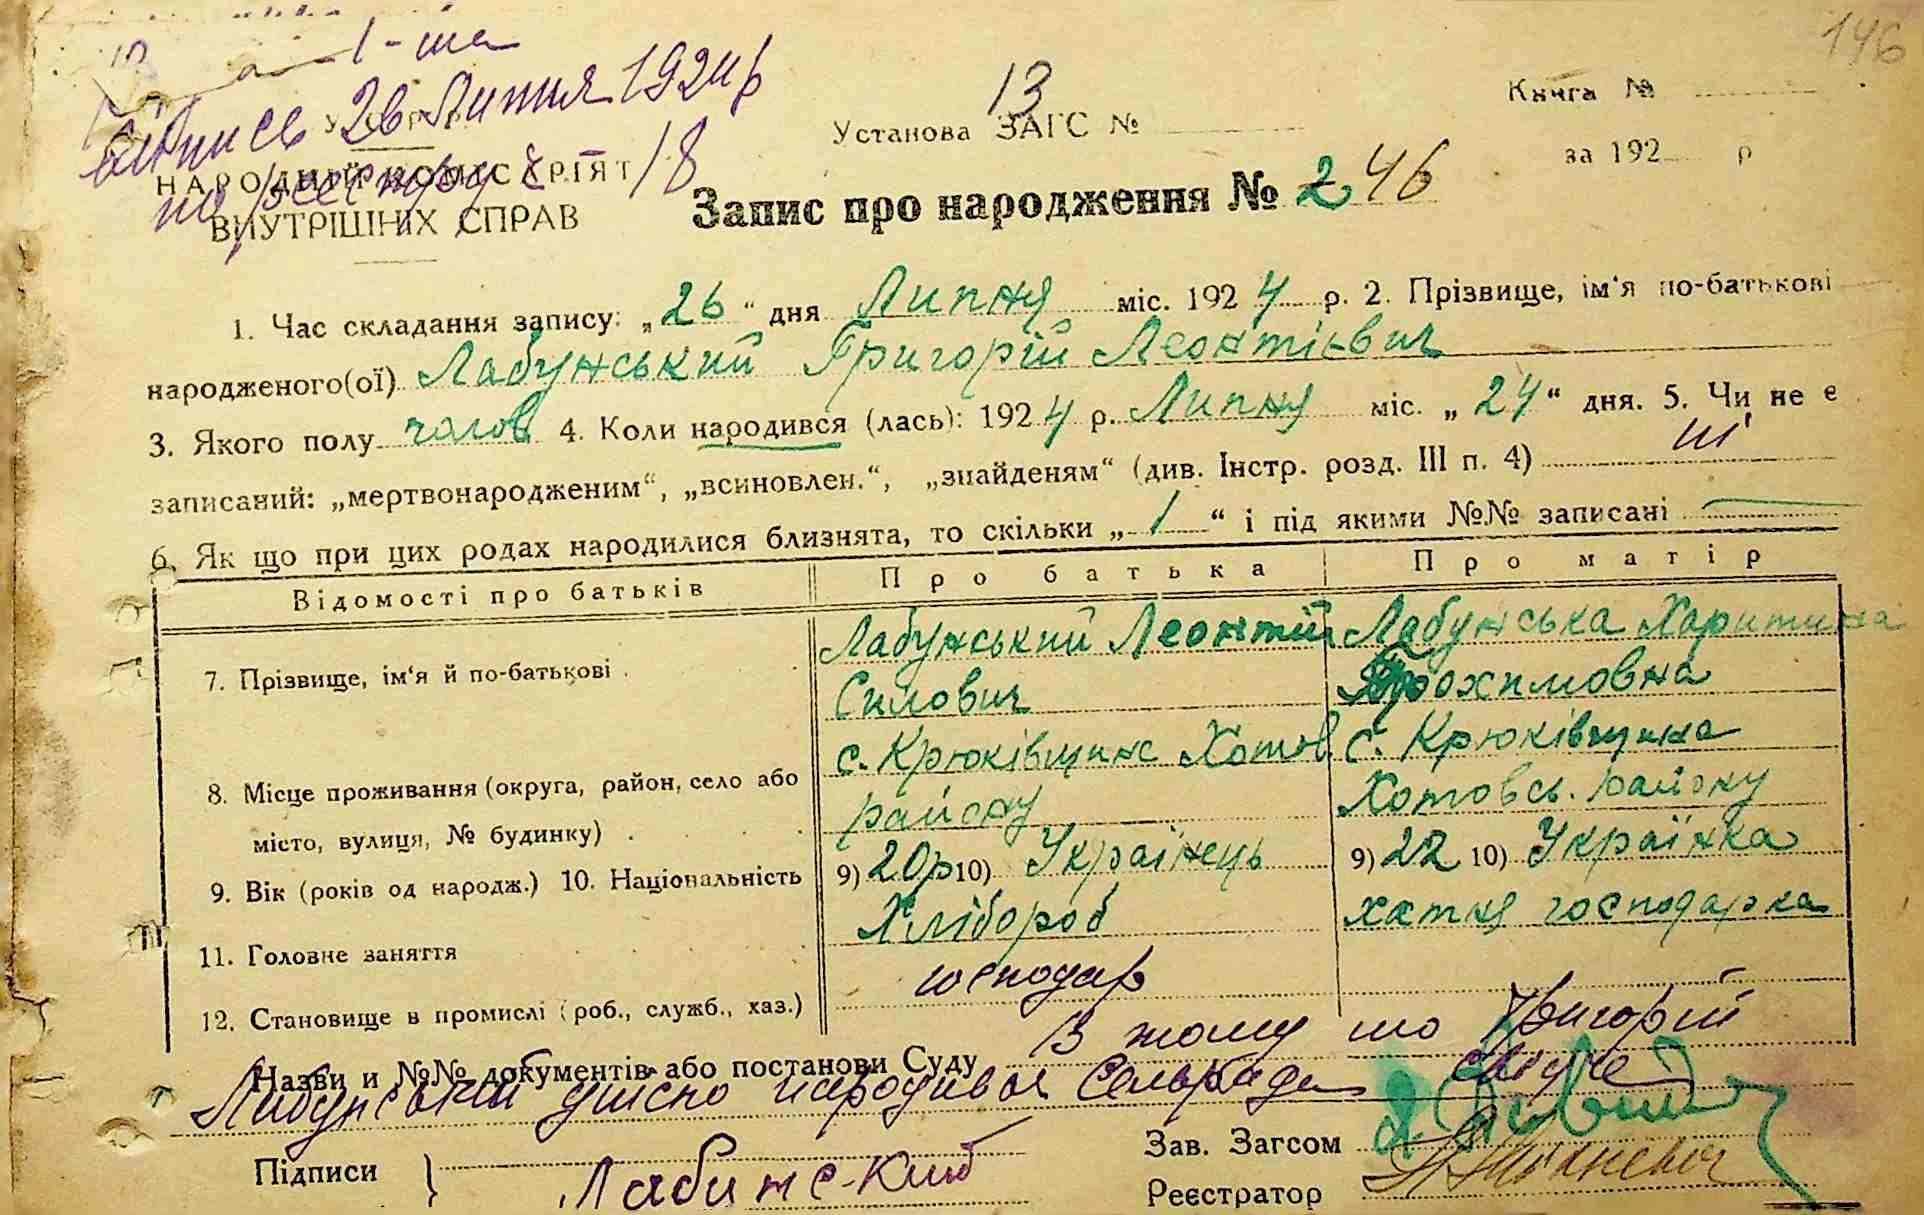 146
1-ша
Випись 26 Липня 1924 р
по реєстру № 18
У.С.Р.Р.
НАРОДНИЙ КОМІСАРІЯТ
ВНУТРІШНІХ СПРАВ
13
Установа ЗАГС №
Книга №
за 192 р
Запис про народження № 246
1. Час складання запису: „26“ дня Липня міс. 1924 р. 2. Прізвище, ім‘я по-батькові
народженого(ої) Лабунський Григорій Леонтієвич
3. Якого полу чолов 4. Коли народився (лась): 1924 р. Липня міс. „24“ дня. 5. Чи не є
записаний: „мертвонародженим“, „всиновлен.“, „знайденям“ (див. Інстр. розд. III п. 4) ні
6. Як що при цих родах народилися близнята, то скільки „1“ і під якими №№ записані —
Відомості про батьків Про батька Про матір
7. Прізвище, ім‘я й по-батькові . Лабунський Леонтій Лабунська Харитина
Силович Трохимовна
с. Крюківщина Хотов. с. Крюківщина
8. Місце проживання (округа, район, село або району Хотовсь. району
місто, вулиця, № будинку) .
9. Вік (років од народж.) 10. Національність 9) 20р 10) Українець 9) 22 10) Українка
11. Головне заняття Хлібороб хатня господарка
12. Становище в промислі (роб., служб., хаз.) господар
Назви и №№ документів або постанови Суду В тому що Григорій
Лабунський дійсно народився Сельрада свідче
Підписи } Лабунс-кий
Зав. Загсом
Реєстратор